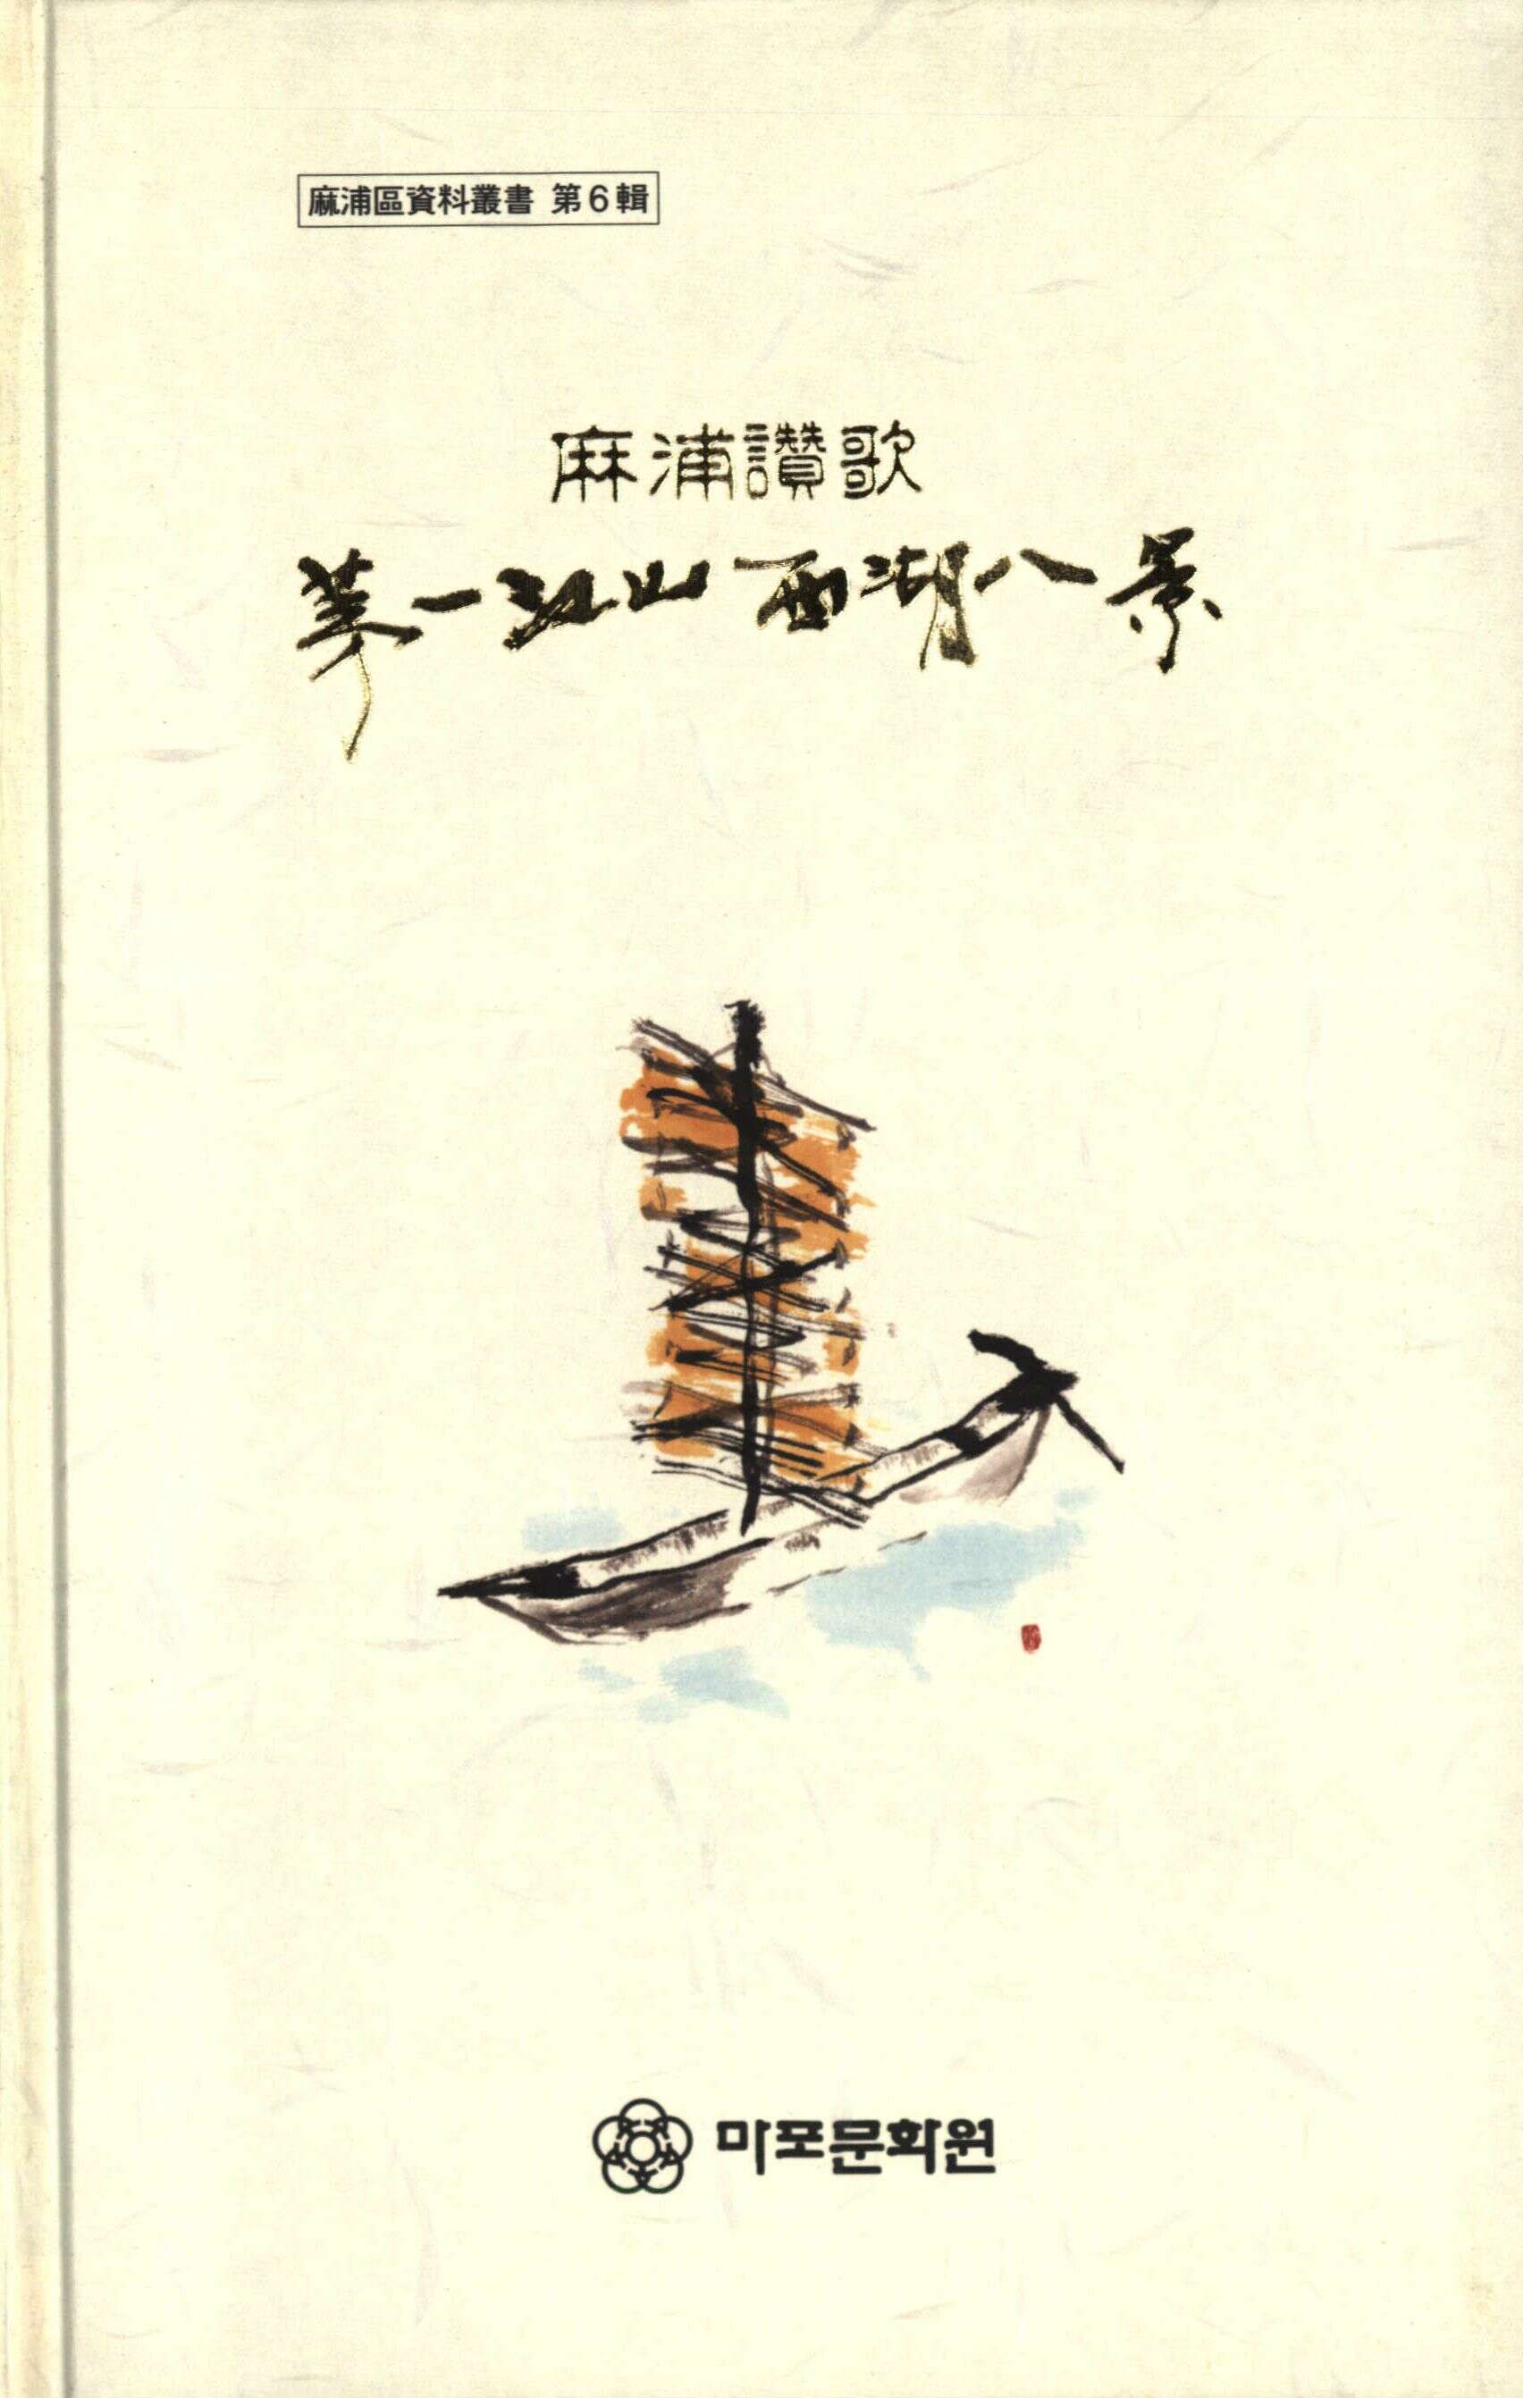 麻浦區資料叢書 第6輯
麻浦讚歌
第一江山 西湖八景
마포문화원